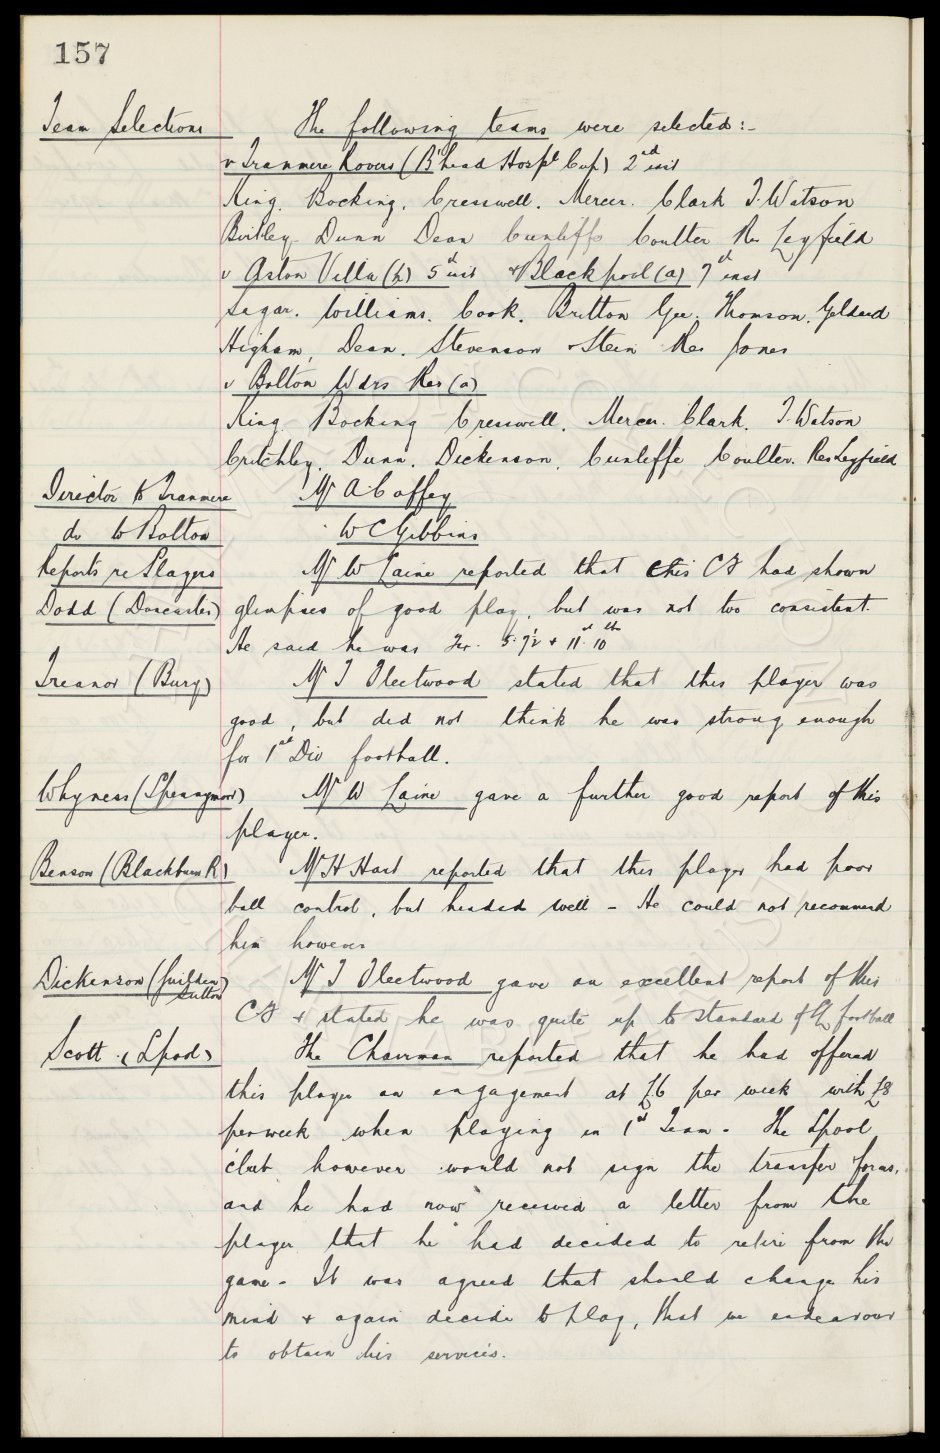 157
Team Selections The following teams were selected:-
v Tranmere Rovers (B'head Hospl Cup) 2nd inst
King. Bocking. Cresswell. Mercer. Clark T. Watson
Dunn Dean Cunliffe Coulter Res Leyfield
v Aston Villa (h) 5th inst & v Blackpool (a) 7th inst
Sagar. Williams. Cook. Britton Gee. Thomson. Geldard
Higham, Dean. Stevenson & Stein Res Jones
v Bolton Wdrs Res (a)
King. Bocking Cresswell. Mercer. Clark. T. Watson
Critchley. Dunn. Dickenson. Cunliffe Coulter. Res Leyfield
Director to Tranmere Mr A Coffey
do to Bolton W C Gibbins
Reports re Players Mr W Laine reported that this CF had shown
Dodd (Doncaster) glimpses of good play, but was not too consistent.
He said he was 5.9½ & 11st 10lb
Treanor (Bury) Mr T Fleetwood stated that this player was
good, but did not think he was strong enough
for 1st Div football.
Whyness (Spennymoor) Mr W Laine gave a further good report of this
player.
Benson (Blackburn R) Mr H Hart reported that this player had poor
ball control, but headed well - He could not recommend
him however
Dickenson (Guilden Sutton) Mr T Fleetwood gave an excellent report of this
CF & stated he was quite up to standard of football
Scott (L'pool) The Chairman reported that he had offered
this player an engagement at £6 per week with £8
per week when playing in 1st Team - The L'pool
club however would not sign the transfer forms,
and he had now received a letter from the
player that he had decided to retire from the
game - It was agreed that should change his
mind & again decide to play, that we endeavour
to obtain his services.